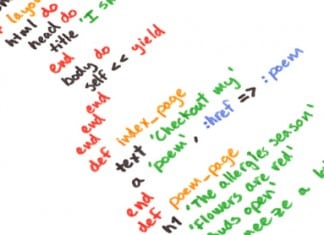 layou
html do
head do
title 'I sn
end
body do
self << yield
end
end
end
def index_page
text 'Checkout my'
a 'poem', :href => :poem
end
def poem_page
h1 'The allergies season'
'Flowers are red'
uds open'
neeze a b